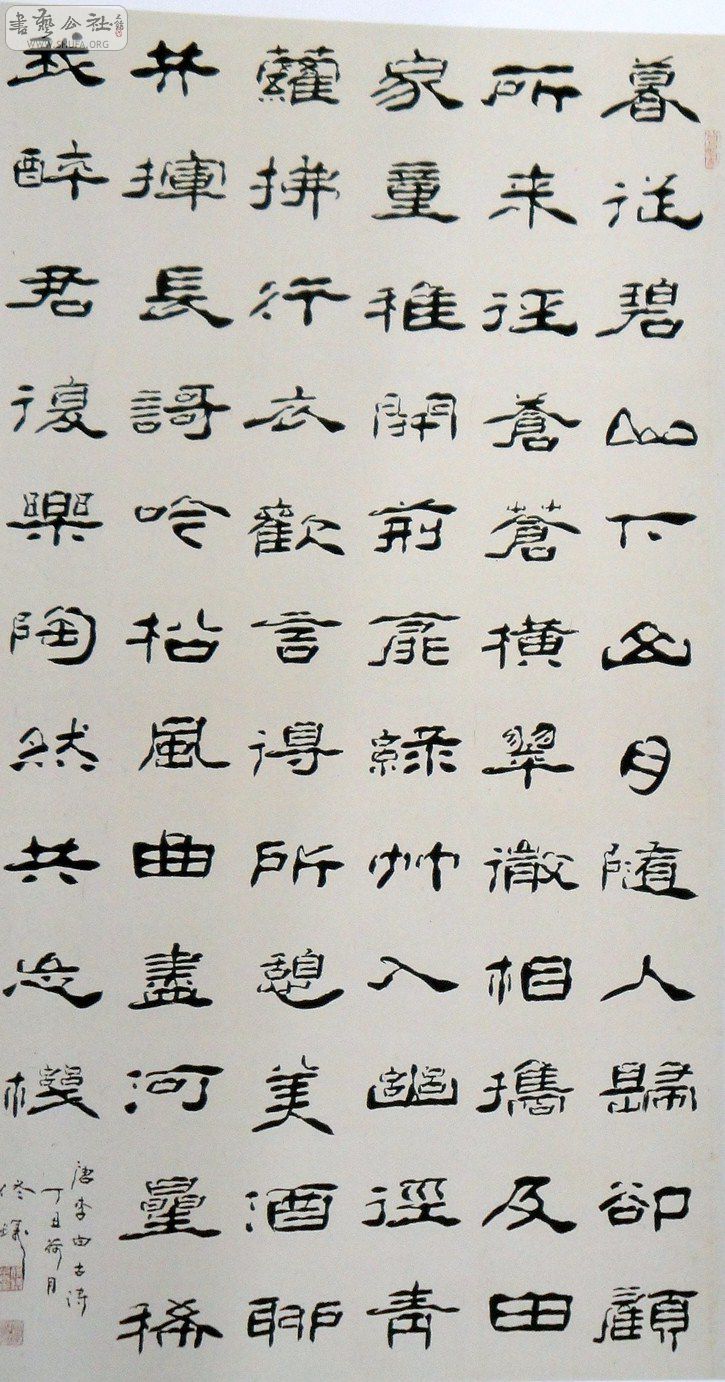 書藝公社
WWW.SHUFA.ORG
暮從碧山下山月隨人歸卻顧
所来徑蒼蒼橫翠微相攜及田
家童稚開荊扉綠竹入幽徑青
蘿拂行衣歡言得所憩美酒聊
共揮長謌吟松風曲盡河星稀
我醉君復樂陶然共忘機
唐李白古詩
丁丑荷月